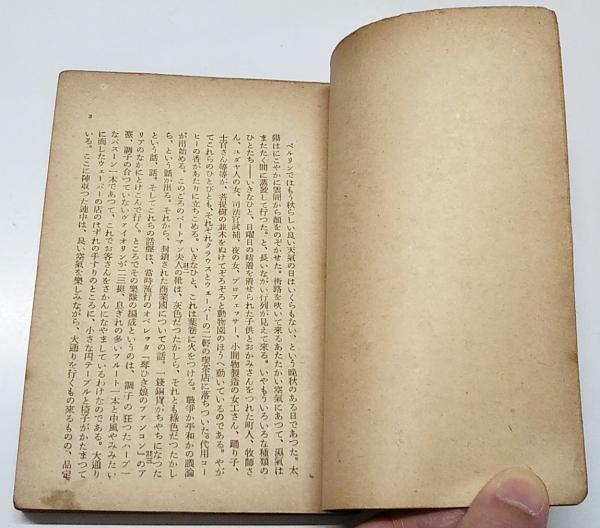 ベルリンではもう秋らしい良い天氣の日はいくらもない、という晩秋のある日であつた。太
陽はにこやかに雲間から顔をのぞかせた。街路を吹いて來るあたたかい空氣にあつて、濕氣は
またたく間に蒸發して行つた。と、長いながい行列が見えて來る。いやもういろいろな種類の
ひとたち――いきなひと、日曜日の晴着を着せられた子供とおかみさんをつれた町人、牧師さ
ん、ユダヤ人の女、司法官試補、夜の女、プロフェッサー、小間物製造の女工さん、踊り子、
士官さん等等が、菩提樹の並木をぬけてぞろぞろと動物園のほうへ動いているのである。やが
てこれらのひとびとも、それぞれクラウスとウェーバーの二軒の喫茶店に落ちついた。代用コー
ヒーの香があたりに立ちこめる。いきなひと、これは葉卷に火をつける。戰爭か平和かの議論
が出始める。このごろのベートマン夫人の靴は、灰色だつたかしら、それとも綠色だつたかし
ら、という話が出る。それから、封鎖された商業國についての話。一錢銅貨がちやちになつた
という話、話。そしてこれらの話聲は、當時流行のオペレッタ『琴ひき娘のファンコン』のア
リアのなかにとけこんで行く。ところでその樂隊の編成というのは、調子の狂つたハープ一
臺、調子の合つていないヴァイオリンが二三挺、息ぎれの多いフルート一本と中風やみみたい
なバスーン一本であつて、これでお客さんをさかんになやましているわけなのである。大通り
に面したウェーバーの店のはずれの手すりのところに、小さな円テーブルと椅子がかたまつて
いる。ここに陣取つた連中は、良い空氣を樂しみながら、大通りを行くもの來るものの、品定
3